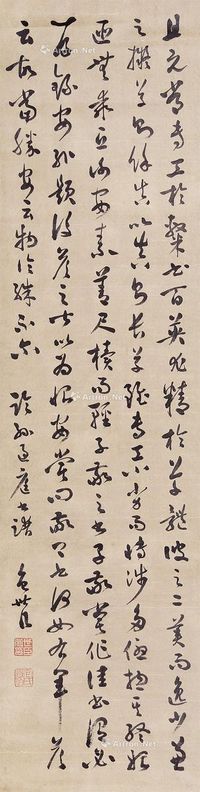 且元常專工於隸書百英尤精於草體彼之二美而逸少兼
之擬草則餘真比真則長草雖專工小劣而博涉多優總其終始
匪無乖互謝安素善尺牘而輕子敬之書子敬嘗作佳書謂必
存錄安輒題後答之甚以為恨安嘗問敬卿書何如右軍答
云故當勝安云物論殊不爾 臨孫過庭書譜